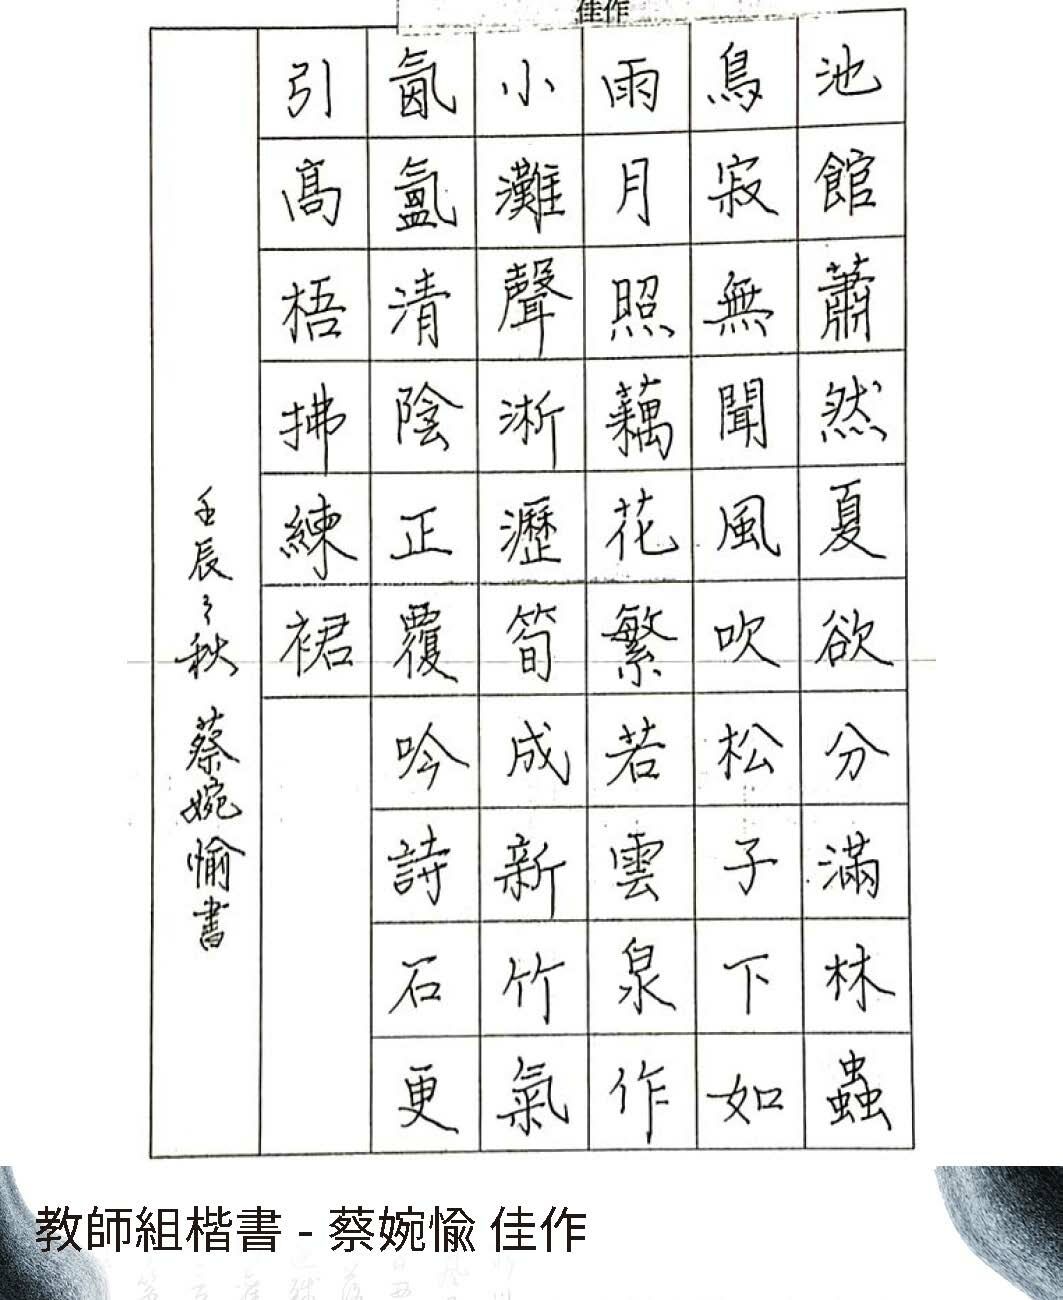 佳作
池館蕭然夏欲分滿林蟲
鳥寂無聞風吹松子下如
雨月照藕花繁若雲泉作
小灘聲淅瀝筍成新竹氣
氤氳清陰正覆吟詩石更
引高梧拂練裙
壬辰之秋 蔡婉愉書
教師組楷書 - 蔡婉愉 佳作